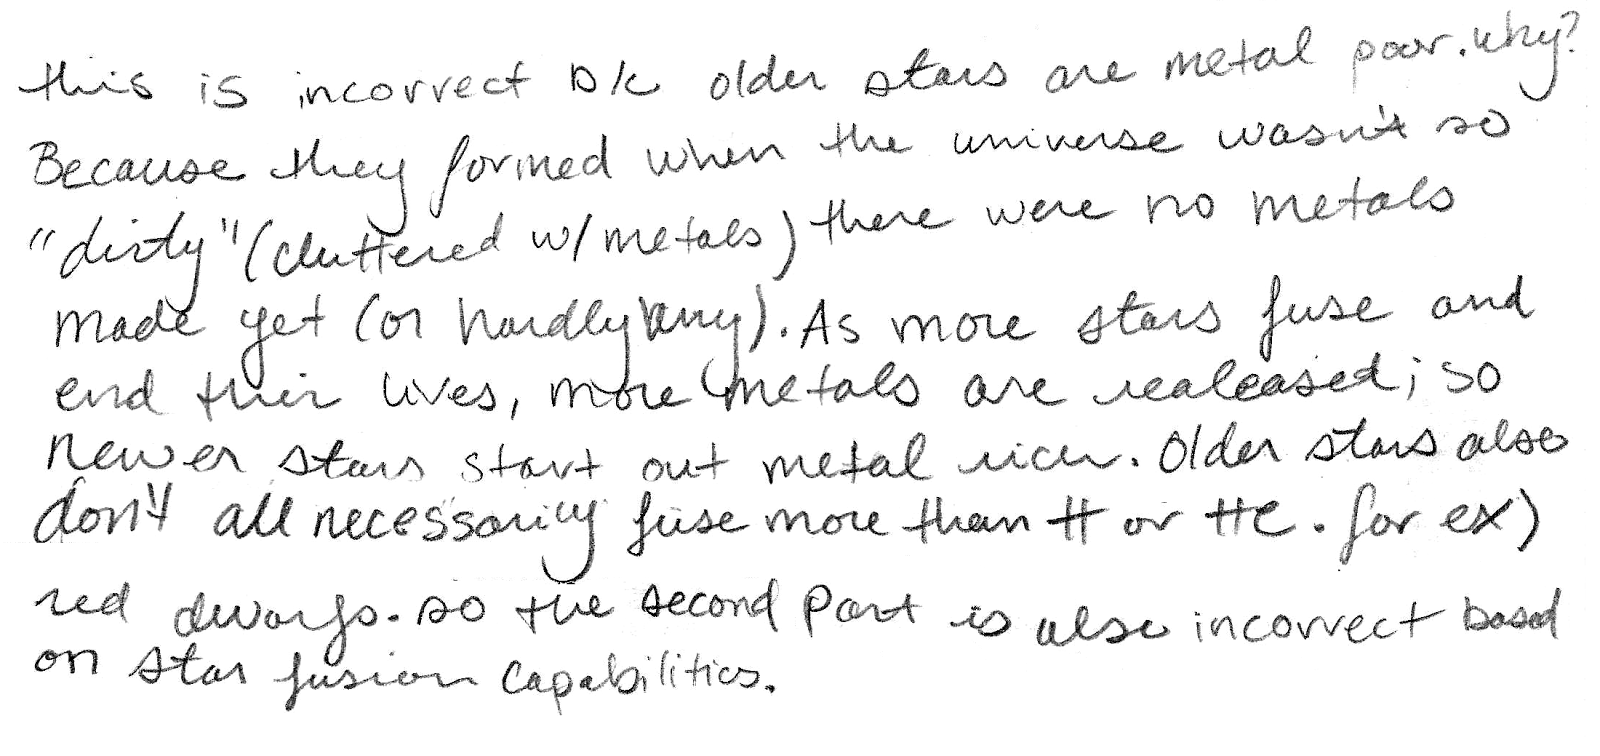 this is incorrect b/c older stars are metal poor. why?
Because they formed when the universe wasn't so
"dirty" (cluttered w/ metals) there were no metals
made yet (or hardly any). As more stars fuse and
end their lives, more metals are realeased; so
newer stars start out metal richer. Older stars also
don't all necessarily fuse more than H or He. for ex)
red dwarfs. so the second part is also incorrect based
on star fusion capabilities.